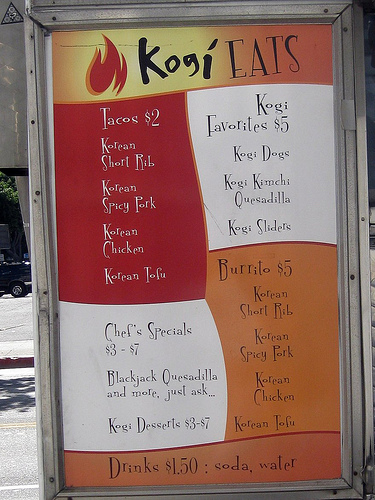 Kogi EATS
Tacos $2
Korean
Short Rib
Korean
Spicy Pork
Korean
Chicken
Korean Tofu
Kogi
Favorites $5
Kogi Dogs
Kogi Kimchi
Quesadilla
Kogi Sliders
Burrito $5
Korean
Short Rib
Korean
Spicy Pork
Korean
Chicken
Korean Tofu
Chef's Specials
$3 - $7
Blackjack Quesadilla
and more, just ask...
Kogi Desserts $3-$7
Drinks $1.50 : soda, water